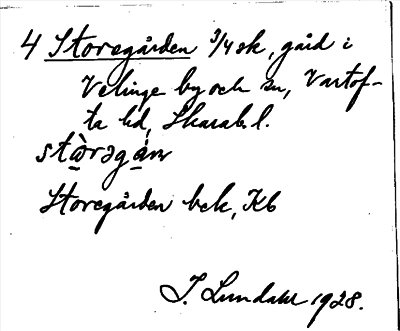 4 Storegården 3/4 sk, gård i
Velinge by och sn, Vartof-
ta hd, Skarab. l.
stⱥ̀rəgⱥ́n
Storegården bck, Kb
I. Lundahl 1928.